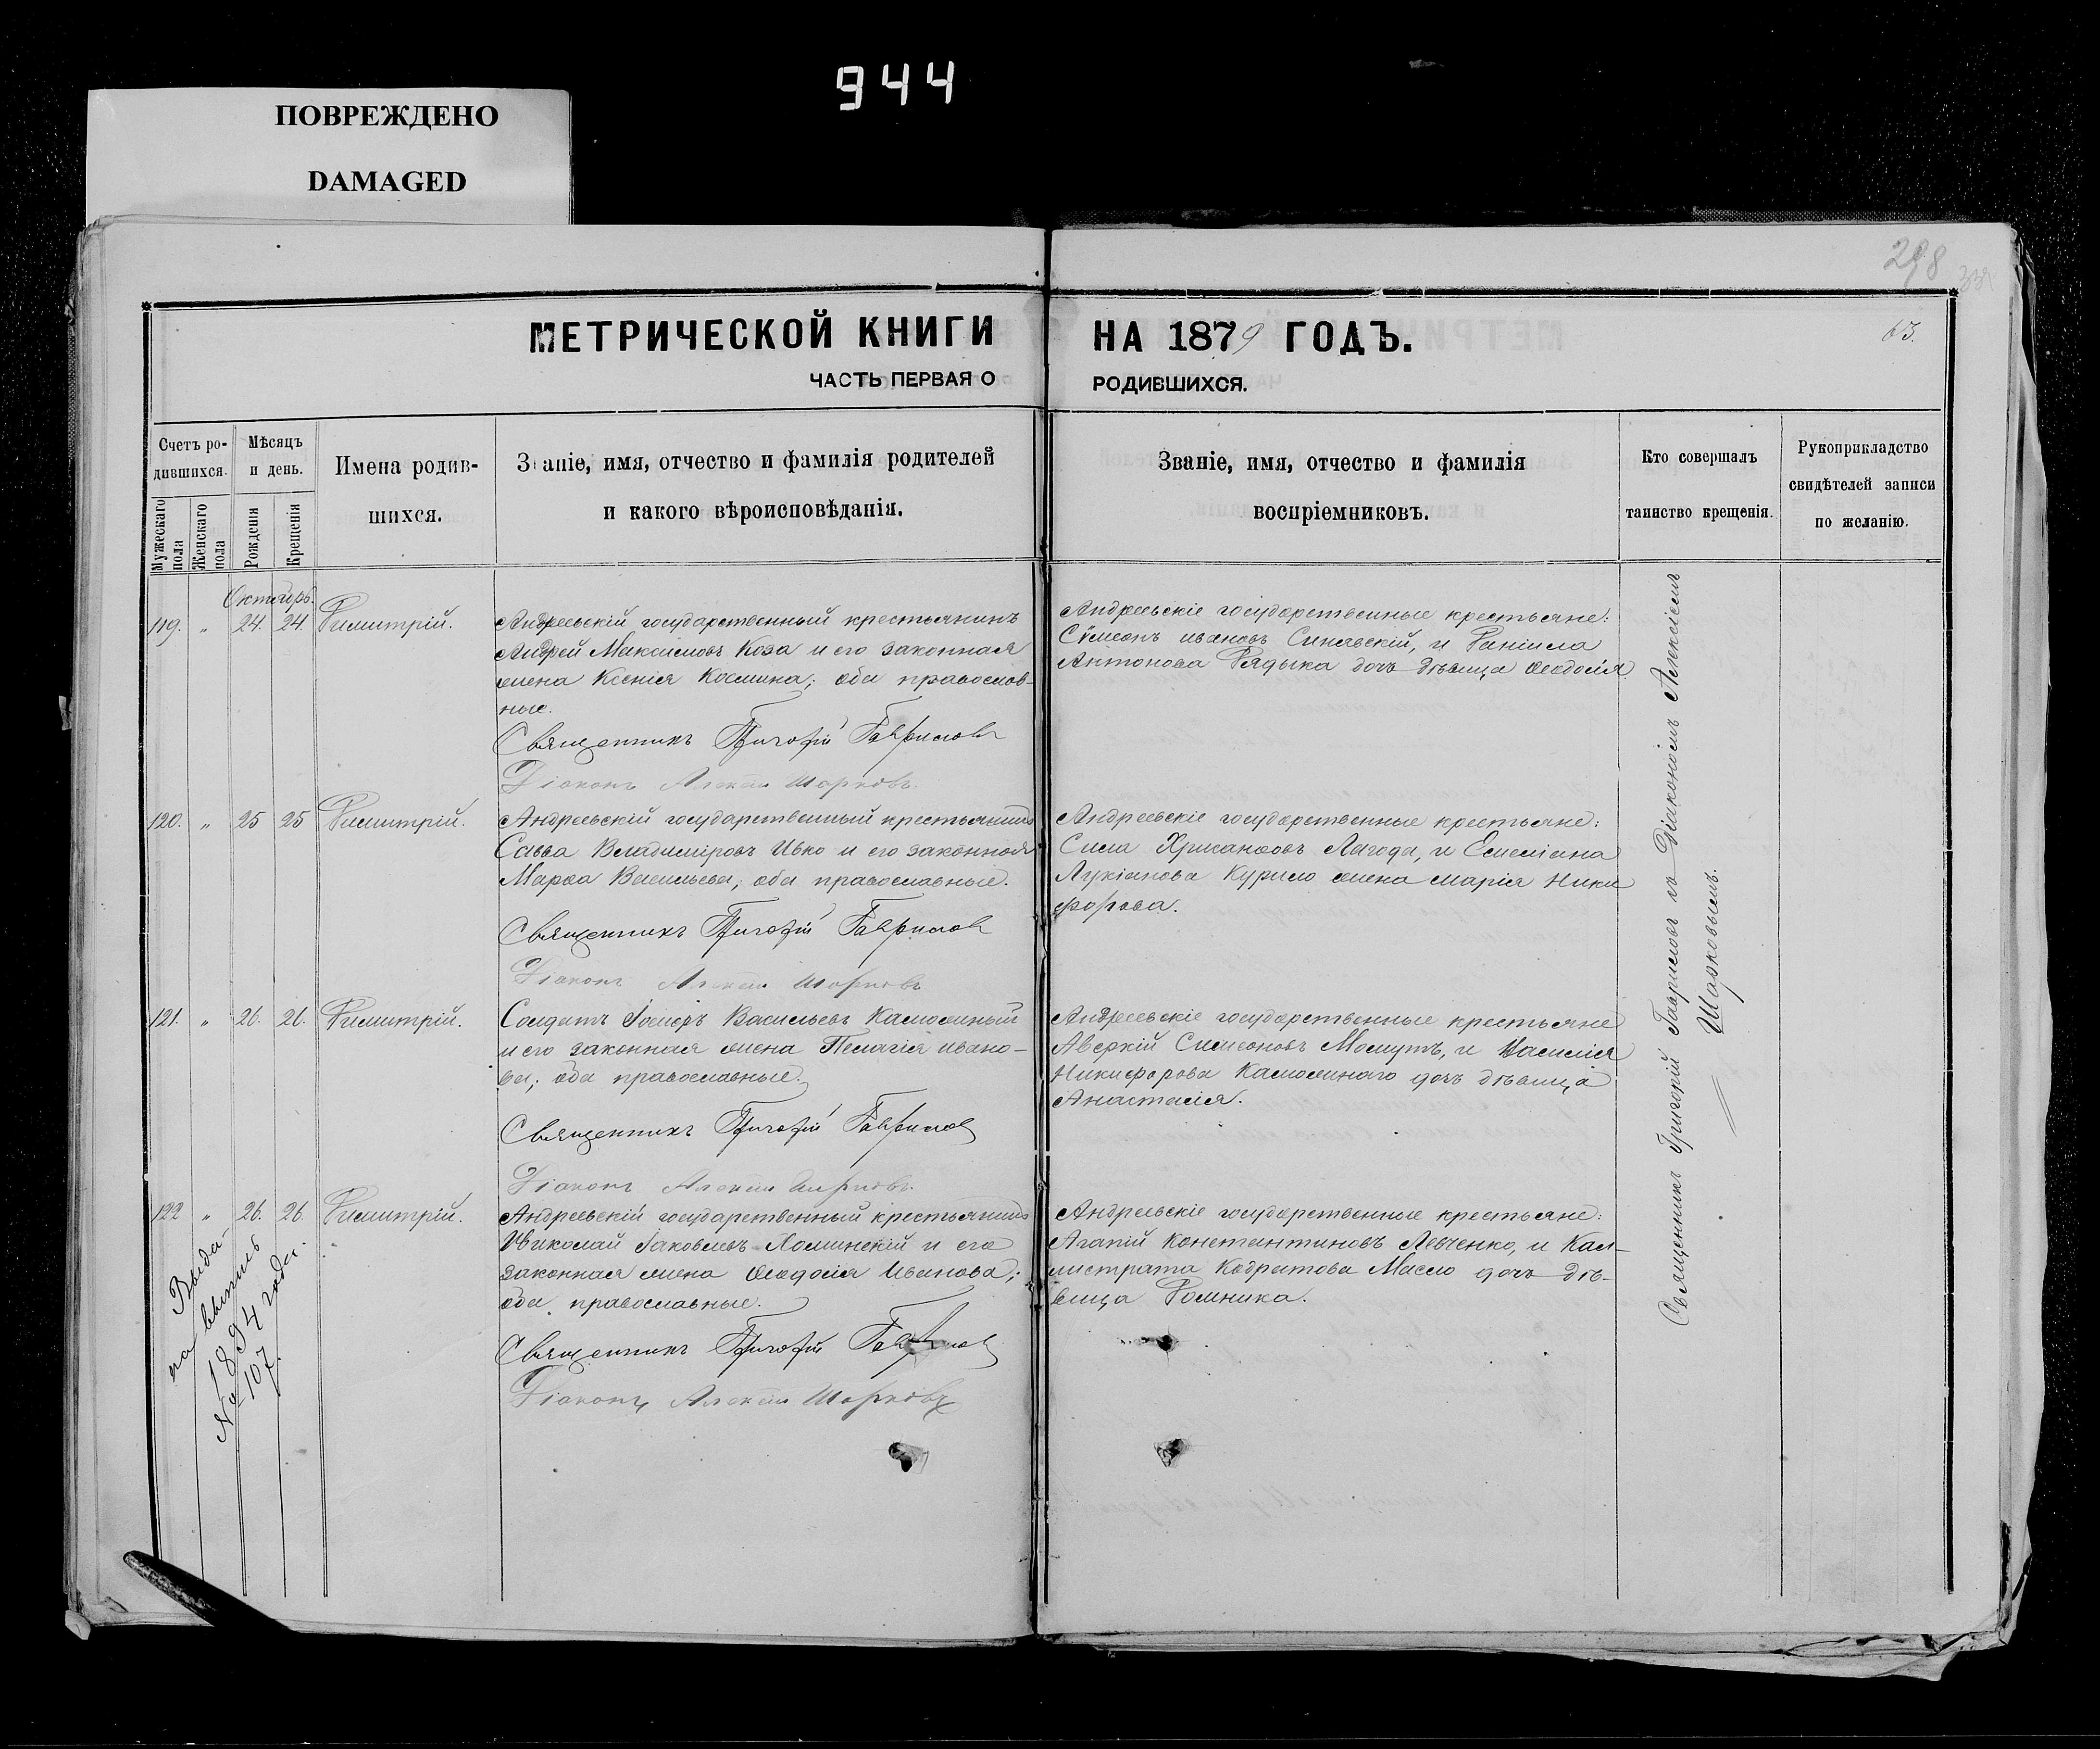 944
ПОВРЕЖДЕНО
DAMAGED
298
63.
МЕТРИЧЕСКОЙ КНИГИ НА 1879 ГОДЪ.
ЧАСТЬ ПЕРВАЯ О РОДИВШИХСЯ.
Счетъ родившихся.
Мужескаго пола
Женскаго пола
Мѣсяцъ и день.
Рожденія
Крещенія
Имена родившихся.
Званіе, имя, отчество и фамилія родителей
и какого вѣроисповѣданія.
Званіе, имя, отчество и фамилія
воспріемниковъ.
Кто совершалъ
таинство крещенія.
Рукоприкладство
свидѣтелей записи
по желанію.
Октябрь.
119. " 24. 24. Димитрій.
Андреевскій государственный крестьянинъ
Андрей Максимовъ Коза и его законная
жена Ксенія Космина; оба православ-
ные.
Священникъ Григорій Гавриловъ
Діаконъ Алексій Шарковъ.
Андреевскіе государственные крестьяне:
Сѵмеонъ Ивановъ Синявскій, и Даніила
Антонова Рядыка дочь дѣвица Ѳеодосія.
120. " 25 25 Димитрій.
Андреевскій государственный крестьянинъ
Савва Владиміровъ Ивко и его законная
Марѳа Васильева; оба православные.
Священникъ Григорій Гавриловъ
Діаконъ Алексій Шарковъ
Андреевскіе государственные крестьяне:
Сила Хрисанѳовъ Лагода, и Емиліана
Лукіанова Курило жена Марія Ники
форова.
121. " 26. 26. Димитрій.
Солдатъ Іосифъ Васильевъ Каложный
и его законная жена Пелагія Ивано-
ва; оба православные.
Священникъ Григорій Гавриловъ
Діаконъ Алексій Шарковъ.
Андреевскіе государственные крестьяне
Аверкій Симеоновъ Мамутъ, и Василія
Никифорова Каложнаго дочь дѣвица
Анастасія.
122 " 26. 26. Димитрій.
Андреевскій государственный крестьянинъ
Николай Іаковлевъ Холминскій и его
законная жена Ѳеодосія Иванова;
оба православные.
Священникъ Григорій Гавриловъ
Діаконъ Алексій Шарковъ
Андреевскіе государственные крестьяне:
Агапій Константиновъ Левченко, и Кал-
листрата Кодратова Масло дочь дѣ-
вица Домника.
Выда-
на выпись
1894 года.
№ 107.
Священникъ Григорій Гавриловъ съ Діакономъ Алексіемъ
Шарковымъ.